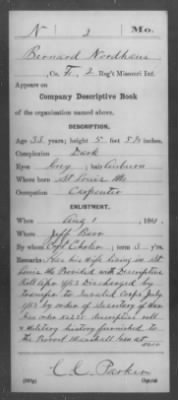 N 2 Mo.
Bernard Nordhaus
, Co. F, 2 Reg't Missouri Inf.
Appears on
Company Descriptive Book
of the organization named above.
DESCRIPTION.
Age 33 years; height 5 feet 5½ inches.
Complexion Dark
Eyes Gray ; hair Auburn
Where born St Louis Mo
Occupation Carpenter
ENLISTMENT.
When Aug 1 , 186 .
Where Jeff Bar
By whom Cpt ; term 3 y'rs.
Remarks: Has his wife living in St
Louis Mo Provided with Descriptive
Roll Apr 9/63 Discharged by
transfer to Invalid Corps July
9/63 by order of Secretary of War
descriptive roll
& Military history furnished to
the Provost Marshall Gen at
C. C. Parker
Copyist.